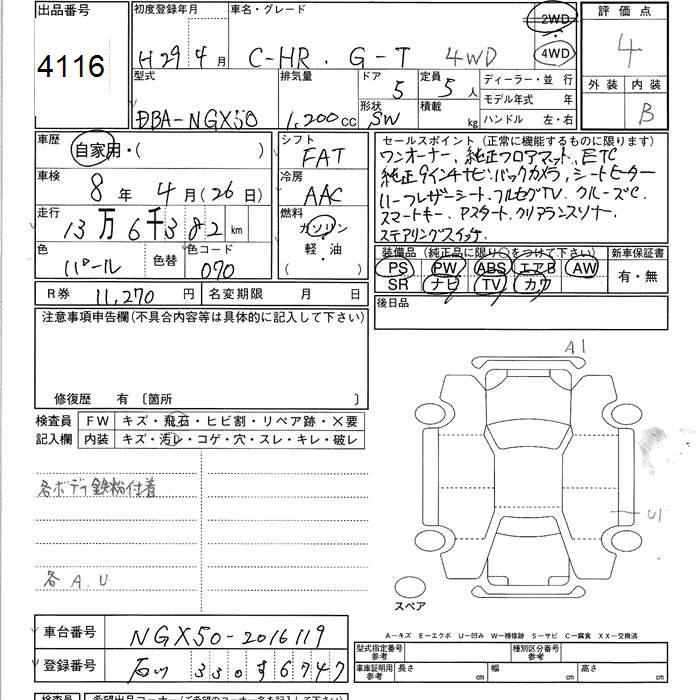 出品番号
4116
初度登録年月
H29年4月
車名・グレード
C-HR . G-T 4WD
2WD
・
4WD
評価点
4
外装 内装
B
型式
DBA-NGX50
排気量
1,200cc
ドア
5
定員
5人
形状
SW
積載
kg
ディーラー・並行
モデル年式 年
ハンドル 左・右
車歴
自家用・( )
車検
8年4月(26日)
走行
13万6千382km
色
パール
色替
色コード
070
シフト
FAT
冷房
AAC
燃料
ガソリン
軽・油
( )
セールスポイント(正常に機能するものに限ります)
ワンオーナー、純正フロアマット、ETC
純正9インチナビ、バックカメラ、シートヒーター
ハーフレザーシート、フルセグTV、クルーズC
スマートキー、Pスタート、クリアランスソナー、
ステアリングスイッチ
装備品(純正品に限り○をつけて下さい)
新車保証書
PS PW ABS エアB AW
SR ナビ TV カワ
有・無
R券
11,270円
名変期限 月 日
後日品
注意事項申告欄(不具合内容等は具体的に記入して下さい)
修復歴 有 〔箇所 〕
検査員
記入欄
FW キズ・飛石・ヒビ割・リペア跡・X要
内装 キズ・汚レ・コゲ・穴・スレ・キレ・破レ
各ボディ鉄粉付着
各 A.U
A1
U1
スペア
車台番号
NGX50-2016119
登録番号
石川 330 す 6747
A－キズ E－エクボ U－凹み W－補修跡 S－サビ C－腐食 XX－交換済
型式指定番号
参考
種別区分番号
参考
車庫証明用
参考
長さ cm
幅 cm
高さ cm
検査員
希望出品コーナー(ご希望のコーナー名を記入して下さい)